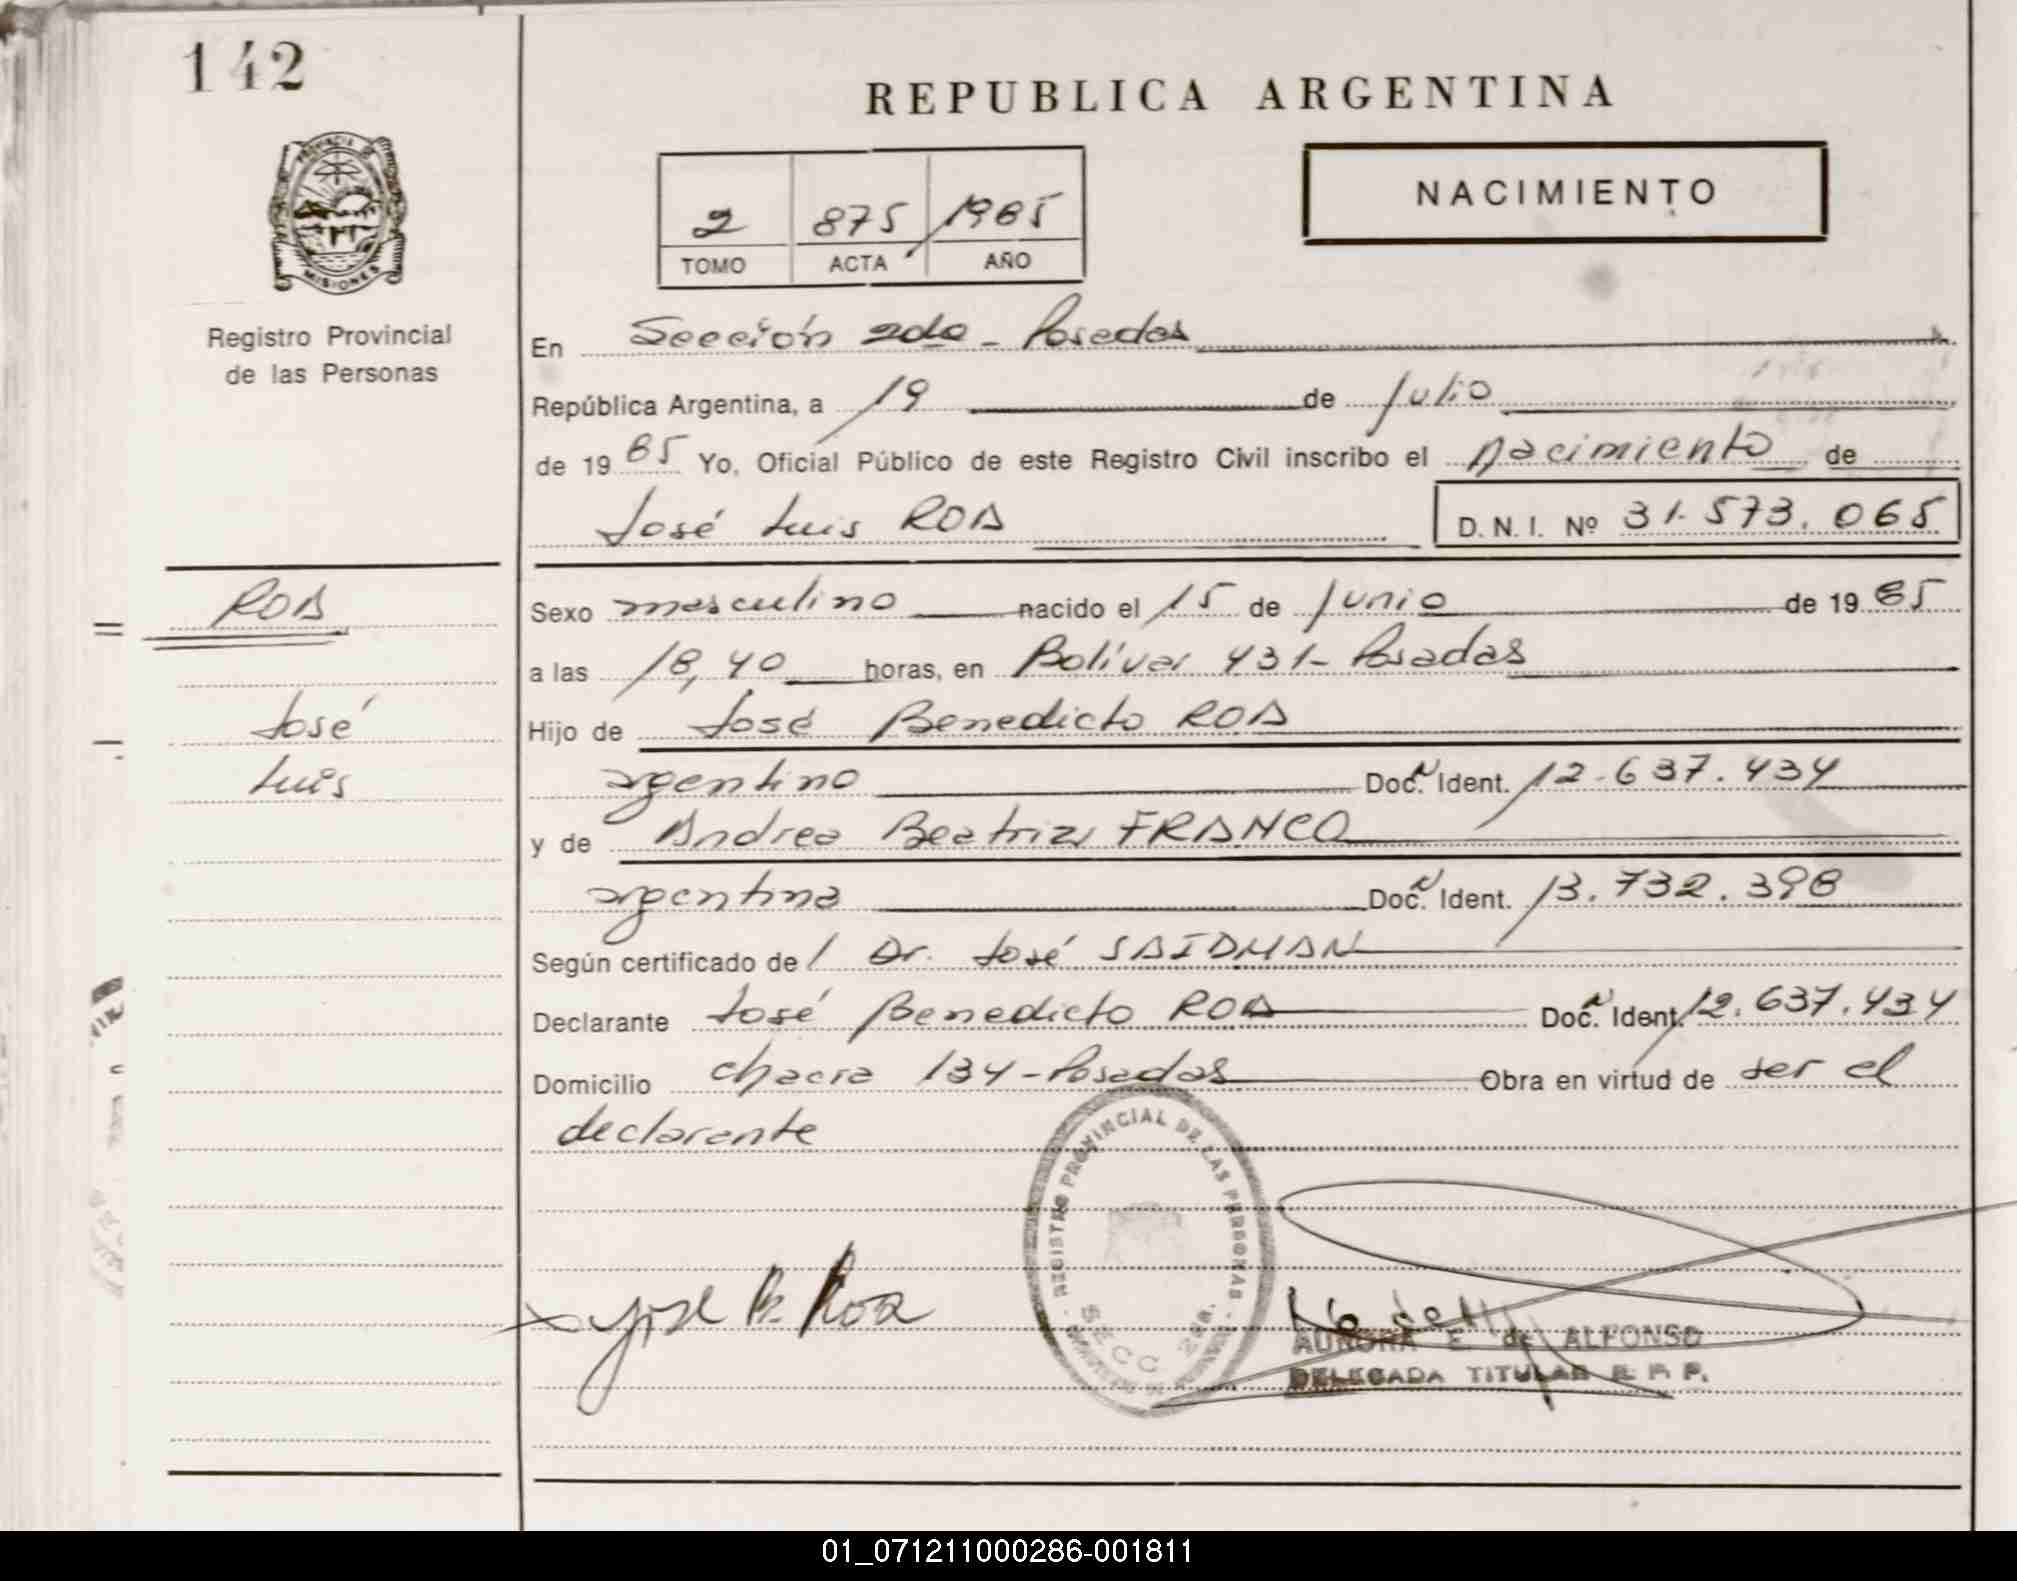 142
REPUBLICA ARGENTINA
PROVINCIA DE
MISIONES
Registro Provincial
de las Personas
2 875 1985
TOMO ACTA AÑO
NACIMIENTO
En Sección 2da - Posadas
República Argentina, a 19 de Julio
de 19 85 Yo, Oficial Público de este Registro Civil inscribo el nacimiento de
José Luis ROA D. N. I. Nº 31.573.065
ROA
José
Luis
Sexo masculino nacido el 15 de Junio de 19 85
a las 18,40 horas, en Bolívar 431 - Posadas
Hijo de José Benedicto ROA
argentino Doc. Ident. 12.637.434
y de Andrea Beatriz FRANCO
argentina Doc. Ident. 13.732.398
Según certificado de l Dr. José SAIDMAN
Declarante José Benedicto ROA Doc. Ident. 12.637.434
Domicilio chacra 134 - Posadas Obra en virtud de ser el
declarante
REGISTRO PROVINCIAL DE LAS PERSONAS
SECC 2da.
José B. Roa
AURORA E. de ALFONSO
DELEGADA TITULAR R. P. P.
01_071211000286-001811